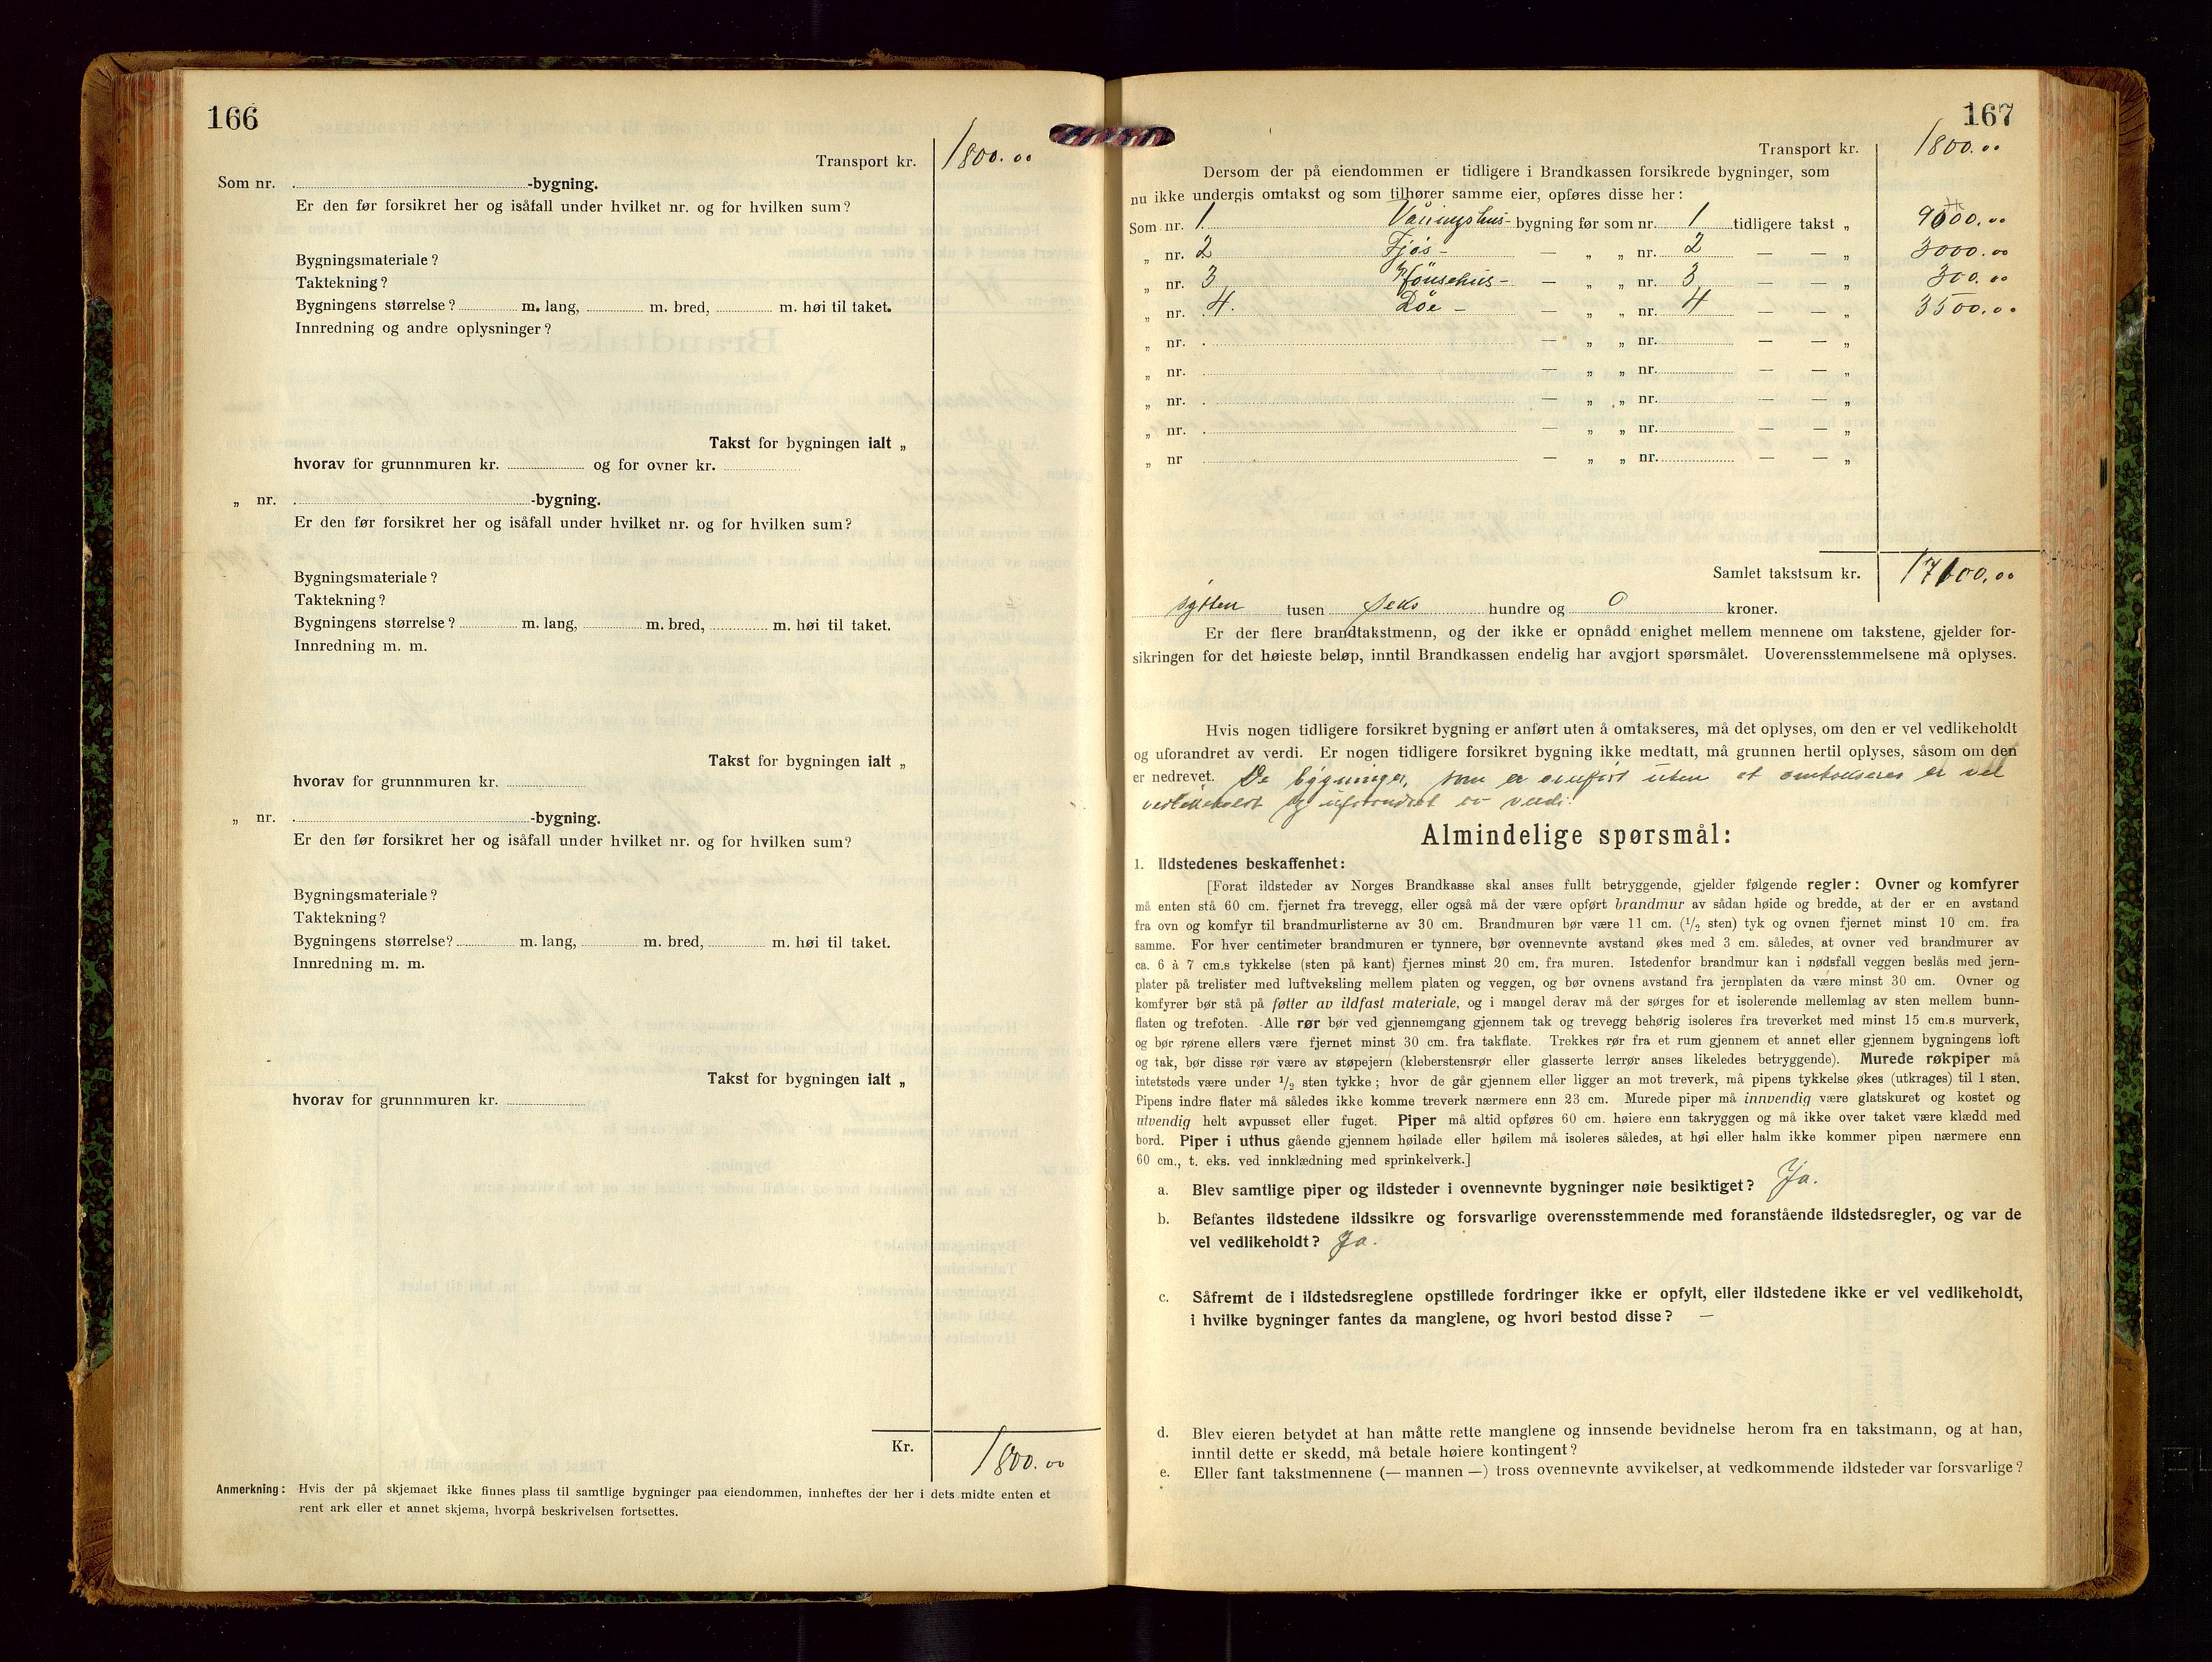 166
Transport kr. 1800.00
Som nr. -bygning.
Er den før forsikret her og isåfall under hvilket nr. og for hvilken sum?
Bygningsmateriale?
Taktekning?
Bygningens størrelse? m. lang, m. bred, m. høi til taket.
Innredning og andre oplysninger?
Takst for bygningen ialt „
hvorav for grunnmuren kr. og for ovner kr.
„ nr. -bygning.
Er den før forsikret her og isåfall under hvilket nr. og for hvilken sum?
Bygningsmateriale?
Taktekning?
Bygningens størrelse? m. lang, m. bred, m. høi til taket.
Innredning m. m.
Takst for bygningen ialt „
hvorav for grunnmuren kr.
„ nr. -bygning.
Er den før forsikret her og isåfall under hvilket nr. og for hvilken sum?
Bygningsmateriale?
Taktekning?
Bygningens størrelse? m. lang, m. bred, m. høi til taket.
Innredning m. m.
Takst for bygningen ialt „
hvorav for grunnmuren kr.
Kr. 1800.00
Anmerkning: Hvis der på skjemaet ikke finnes plass til samtlige bygninger paa eiendommen, innheftes der her i dets midte enten et
rent ark eller et annet skjema, hvorpå beskrivelsen fortsettes.
167
Transport kr. 1800.00
Dersom der på eiendommen er tidligere i Brandkassen forsikrede bygninger, som
nu ikke undergis omtakst og som tilhører samme eier, opføres disse her:
Som nr. 1 Våningshus- bygning før som nr. 1 tidligere takst „ 9000.00
„ nr. 2 Fjøs- — „ „ nr. 2 — — „ 3000.00
„ nr. 3 Hönsehus- — „ „ nr. 3 — — „ 300.00
„ nr. 4. Löe - — „ „ nr. 4 — — „ 3500.00
„ nr. — „ „ nr. — — „
„ nr. — „ „ nr. — — „
„ nr. — „ „ nr. — — „
„ nr. — „ „ nr. — — „
„ nr — „ „ nr. — — „
Samlet takstsum kr. 17600.00
sytten tusen seks hundre og 0 kroner.
Er der flere brandtakstmenn, og der ikke er opnådd enighet mellem mennene om takstene, gjelder for-
sikringen for det høieste beløp, inntil Brandkassen endelig har avgjort spørsmålet. Uoverensstemmelsene må oplyses.
Hvis nogen tidligere forsikret bygning er anført uten å omtakseres, må det oplyses, om den er vel vedlikeholdt
og uforandret av verdi. Er nogen tidligere forsikret bygning ikke medtatt, må grunnen hertil oplyses, såsom om den
er nedrevet. De bygninger, som er anført uten at omtakseres er vel
vedlikeholdt og uforandret av verdi.
Almindelige spørsmål:
1. Ildstedenes beskaffenhet:
[Forat ildsteder av Norges Brandkasse skal anses fullt betryggende, gjelder følgende regler: Ovner og komfyrer
må enten stå 60 cm. fjernet fra trevegg, eller også må der være opført brandmur av sådan høide og bredde, at der er en avstand
fra ovn og komfyr til brandmurlisterne av 30 cm. Brandmuren bør være 11 cm. (1/2 sten) tyk og ovnen fjernet minst 10 cm. fra
samme. For hver centimeter brandmuren er tynnere, bør ovennevnte avstand økes med 3 cm. således, at ovner ved brandmurer av
ca. 6 à 7 cm.s tykkelse (sten på kant) fjernes minst 20 cm. fra muren. Istedenfor brandmur kan i nødsfall veggen beslås med jern-
plater på trelister med luftveksling mellem platen og veggen, og bør ovnens avstand fra jernplaten da være minst 30 cm. Ovner og
komfyrer bør stå på føtter av ildfast materiale, og i mangel derav må der sørges for et isolerende mellemlag av sten mellem bunn-
flaten og trefoten. Alle rør bør ved gjennemgang gjennem tak og trevegg behørig isoleres fra treverket med minst 15 cm.s murverk,
og bør rørene ellers være fjernet minst 30 cm. fra takflate. Trekkes rør fra et rum gjennem et annet eller gjennem bygningens loft
og tak, bør disse rør være av støpejern (kleberstensrør eller glasserte lerrør anses likeledes betryggende). Murede røkpiper må
intetsteds være under 1/2 sten tykke; hvor de går gjennem eller ligger an mot treverk, må pipens tykkelse økes (utkrages) til 1 sten.
Pipens indre flater må således ikke komme treverk nærmere enn 23 cm. Murede piper må innvendig være glatskuret og kostet og
utvendig helt avpusset eller fuget. Piper må altid opføres 60 cm. høiere enn takryggen og må ikke over taket være klædd med
bord. Piper i uthus gående gjennem høilade eller høilem må isoleres således, at høi eller halm ikke kommer pipen nærmere enn
60 cm., t. eks. ved innklædning med sprinkelverk.]
a. Blev samtlige piper og ildsteder i ovennevnte bygninger nøie besiktiget? Ja.
b. Befantes ildstedene ildssikre og forsvarlige overensstemmende med foranstående ildstedsregler, og var de
vel vedlikeholdt? Ja.
c. Såfremt de i ildstedsreglene opstillede fordringer ikke er opfylt, eller ildstedene ikke er vel vedlikeholdt,
i hvilke bygninger fantes da manglene, og hvori bestod disse? —
d. Blev eieren betydet at han måtte rette manglene og innsende bevidnelse herom fra en takstmann, og at han,
inntil dette er skedd, må betale høiere kontingent?
e. Eller fant takstmennene (— mannen —) tross ovennevnte avvikelser, at vedkommende ildsteder var forsvarlige?